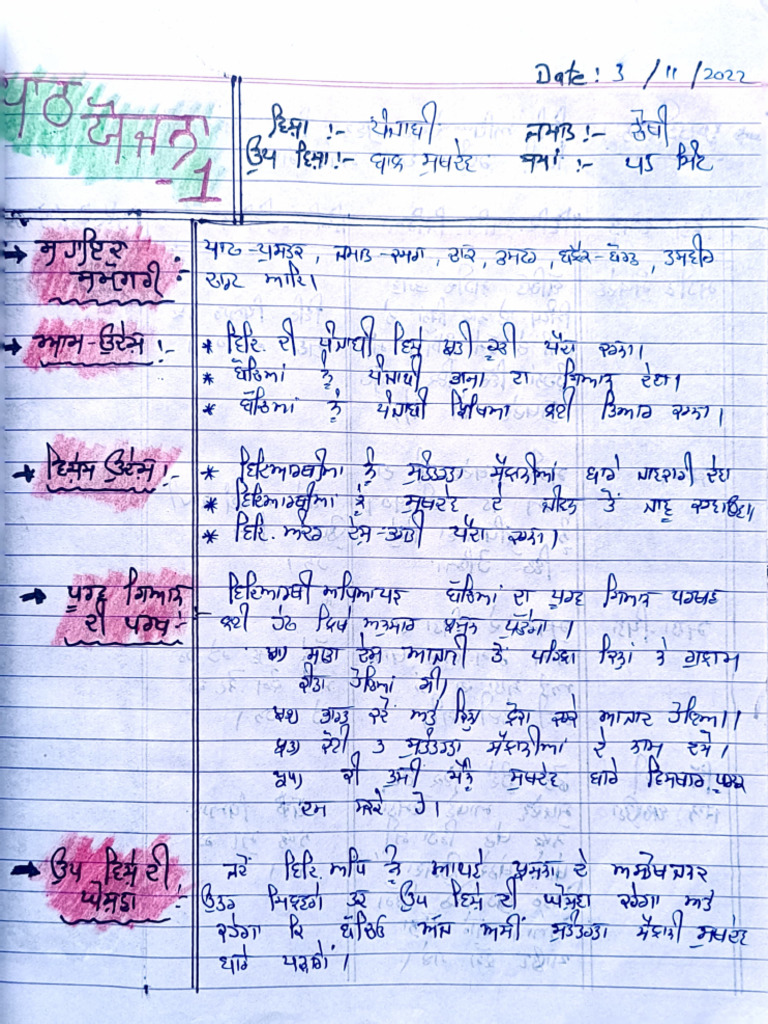 Date: 3 /11/2022
ਪਾਠ ਯੋਜਨਾ -1
ਵਿਸ਼ਾ :- ਪੰਜਾਬੀ ਜਮਾਤ :- ਚੌਥੀ
ਉਪ ਵਿਸ਼ਾ :- ਬਾਲ ਸੁਖਦੇਵ ਸਮਾਂ :- ਮਿੰਟ
ਸਹਾਇਕ ਸਮੱਗਰੀ :-
ਪਾਠ-ਪੁਸਤਕ, ਜਮਾਤ-ਕਮਰਾ, ਚਾਕ, ਡਸਟਰ, ਬਲੈਕ-ਬੋਰਡ, ਤਸਵੀਰ
ਚਾਰਟ ਆਦਿ।
ਆਮ-ਉਦੇਸ਼ :-
* ਵਿਦਿ. ਦੀ ਪੰਜਾਬੀ ਵਿਸ਼ੇ ਪ੍ਰਤੀ ਰੂਚੀ ਪੈਦਾ ਕਰਨਾ।
* ਬੱਚਿਆਂ ਨੂੰ ਪੰਜਾਬੀ ਭਾਸ਼ਾ ਦਾ ਗਿਆਨ ਦੇਣਾ।
* ਬੱਚਿਆਂ ਨੂੰ ਪੰਜਾਬੀ ਲਈ ਤਿਆਰ ਕਰਨਾ।
ਵਿਸ਼ੇਸ਼ ਉਦੇਸ਼ :-
* ਵਿਦਿਆਰਥੀਆਂ ਨੂੰ ਸੁਤੰਤਰਤਾ ਸੈਲਾਨੀਆਂ ਬਾਰੇ ਜਾਣਕਾਰੀ ਦੇਣਾ
* ਵਿਦਿਆਰਥੀਆਂ ਨੂੰ ਸੁਖਦੇਵ ਦੇ ਜੀਵਨ ਤੋਂ ਜਾਣੂ ਕਰਵਾਉਣਾ।
* ਵਿਦਿ. ਅੰਦਰ ਦੇਸ਼-ਭਗਤੀ ਪੈਦਾ ਕਰਨਾ।
ਪੂਰਵ ਗਿਆਨ ਦੀ ਪਰਖ :-
ਵਿਦਿਆਰਥੀ ਅਧਿਆਪਕ ਬੱਚਿਆਂ ਦਾ ਪੂਰਵ ਗਿਆਨ ਪਰਖਣ
ਲਈ ਹੇਠ ਲਿਖੇ ਅਨੁਸਾਰ ਪ੍ਰਸ਼ਨ ਪੁੱਛੇਗਾ।
ਪ੍ਰ1) ਸਾਡਾ ਦੇਸ਼ ਆਜ਼ਾਦੀ ਤੋਂ ਪਹਿਲਾਂ ਕਿਨਾਂ ਦੇ ਗੁਲਾਮ
ਹੋਇਆ ਸੀ।
ਪ੍ਰ2) ਭਾਰਤ ਕਦੋਂ ਅਤੇ ਕਿਸ ਕਰਕੇ ਆਜ਼ਾਦ ਹੋਇਆ।
ਪ੍ਰ3) ਕੋਈ ਸੁਤੰਤਰਤਾ ਸੈਲਾਨੀਆਂ ਦੇ ਨਾਮ ਦੱਸੋ।
ਕੀ ਤੁਸੀਂ ਮੈਨੂੰ ਸੁਖਦੇਵ ਬਾਰੇ ਵਿਸਥਾਰ ਪੂਰਵਕ
ਦਸ ਸਕਦੇ ਹੋ।
ਉਪ ਵਿਸ਼ੇ ਦੀ ਘੋਸ਼ਣਾ :-
ਜਦੋਂ ਵਿਦਿ. ਅਧਿ ਨੂੰ ਆਪਣੇ ਪ੍ਰਸ਼ਨਾਂ ਦੇ ਅਸੰਤੋਖਜਨਕ
ਉੱਤਰ ਮਿਲਣਗੇ ਤਾਂ ਉਪ ਵਿਸ਼ੇ ਦੀ ਘੋਸ਼ਣਾ ਕਰੇਗਾ ਅਤੇ
ਕਹੇਗਾ ਕਿ ਬੱਚਿਓ ਅੱਜ ਅਸੀਂ ਸੁਤੰਤਰਤਾ ਸੈਲਾਨੀ ਸੁਖਦੇਵ
ਬਾਰੇ ਪੜ੍ਹਾਂਗੇ।